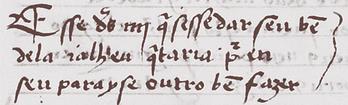 E sse ds mi q̃sesse dar seu bẽ
dela ialh eu q̃taria pr en
seu parayse outro bẽ fazer